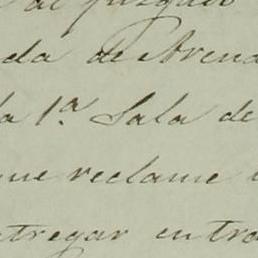 al juzgado
da de Arend
la 1ª Sala de
que reclame
ntregar entra